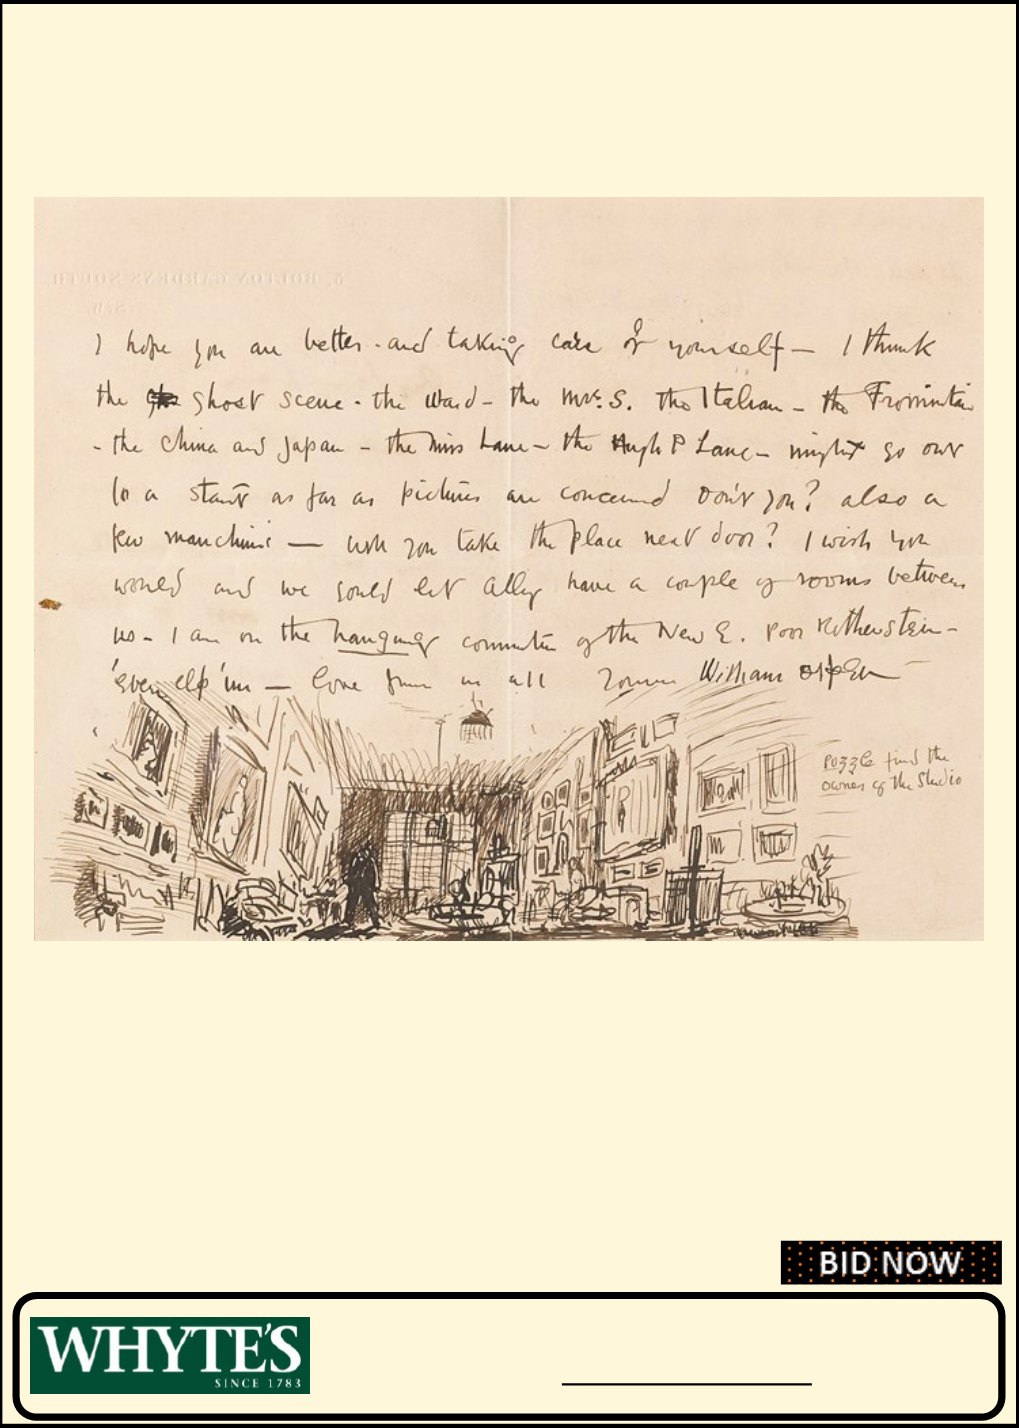 I hope you are better - and taking care of yourself — I think
the ghost scene - the Ward - the Mrs. S. the Italian - the
- the China and Japan - the Miss Lane - the Hugh P Lane - might go out
to a start as far as pictures are concerned Don't you? also a
few — will you take the place next door? I wish you
would and we could let Ally have a couple of rooms between
us - I am on the hanging committee of the New E. Poor Rothenstein -
'even elp 'im — love from us all Yours William Orpen
Puzzle find the
owner of the Studio
BID NOW
WHYTE'S
SINCE 1783